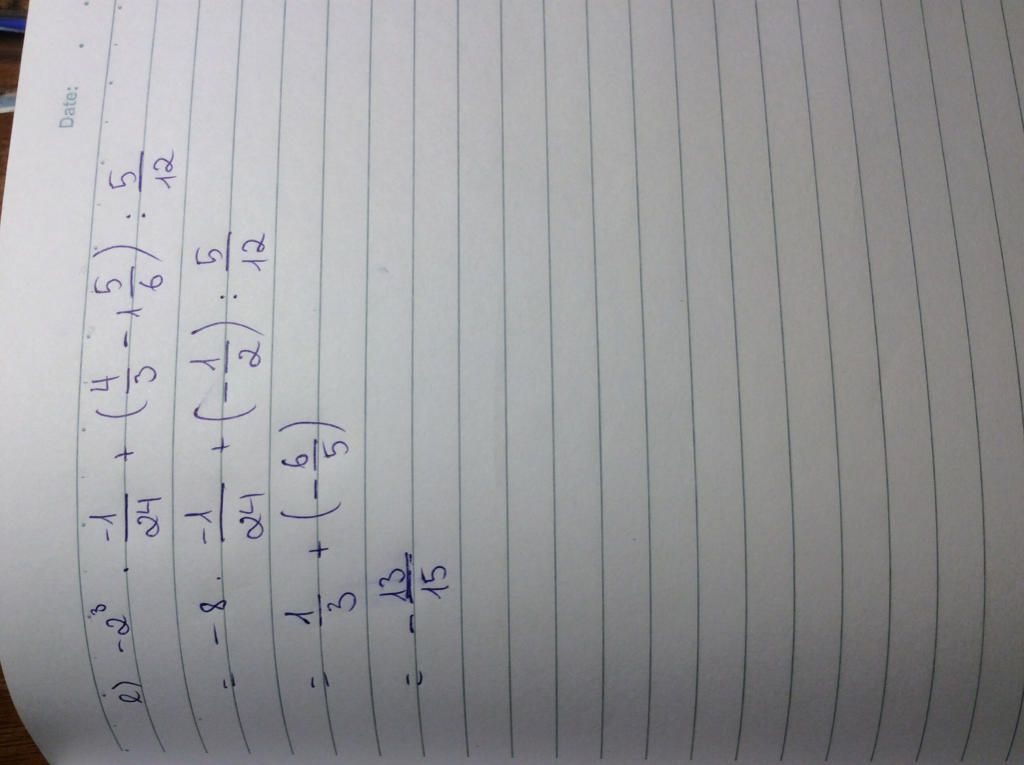 Date:
e) -2³ . -1/24 + (4/3 - 1 5/6) : 5/12
= -8 . -1/24 + (-1/2) : 5/12
= 1/3 + (-6/5)
= -13/15